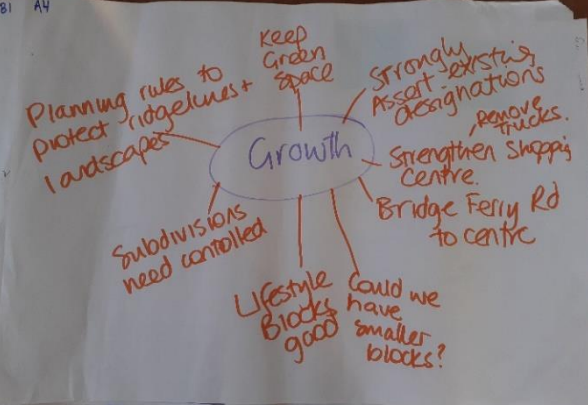 B1 A4
Keep
Green
Space
Strongly
Assert existing
designations
remove
trucks.
Strengthen Shopping
Centre.
Bridge Ferry Rd
to centre
Could we
have
smaller
blocks?
Lifestyle
Blocks
good
Subdivisions
need controlled
Planning rules to
protect ridgelines +
landscapes
Growth